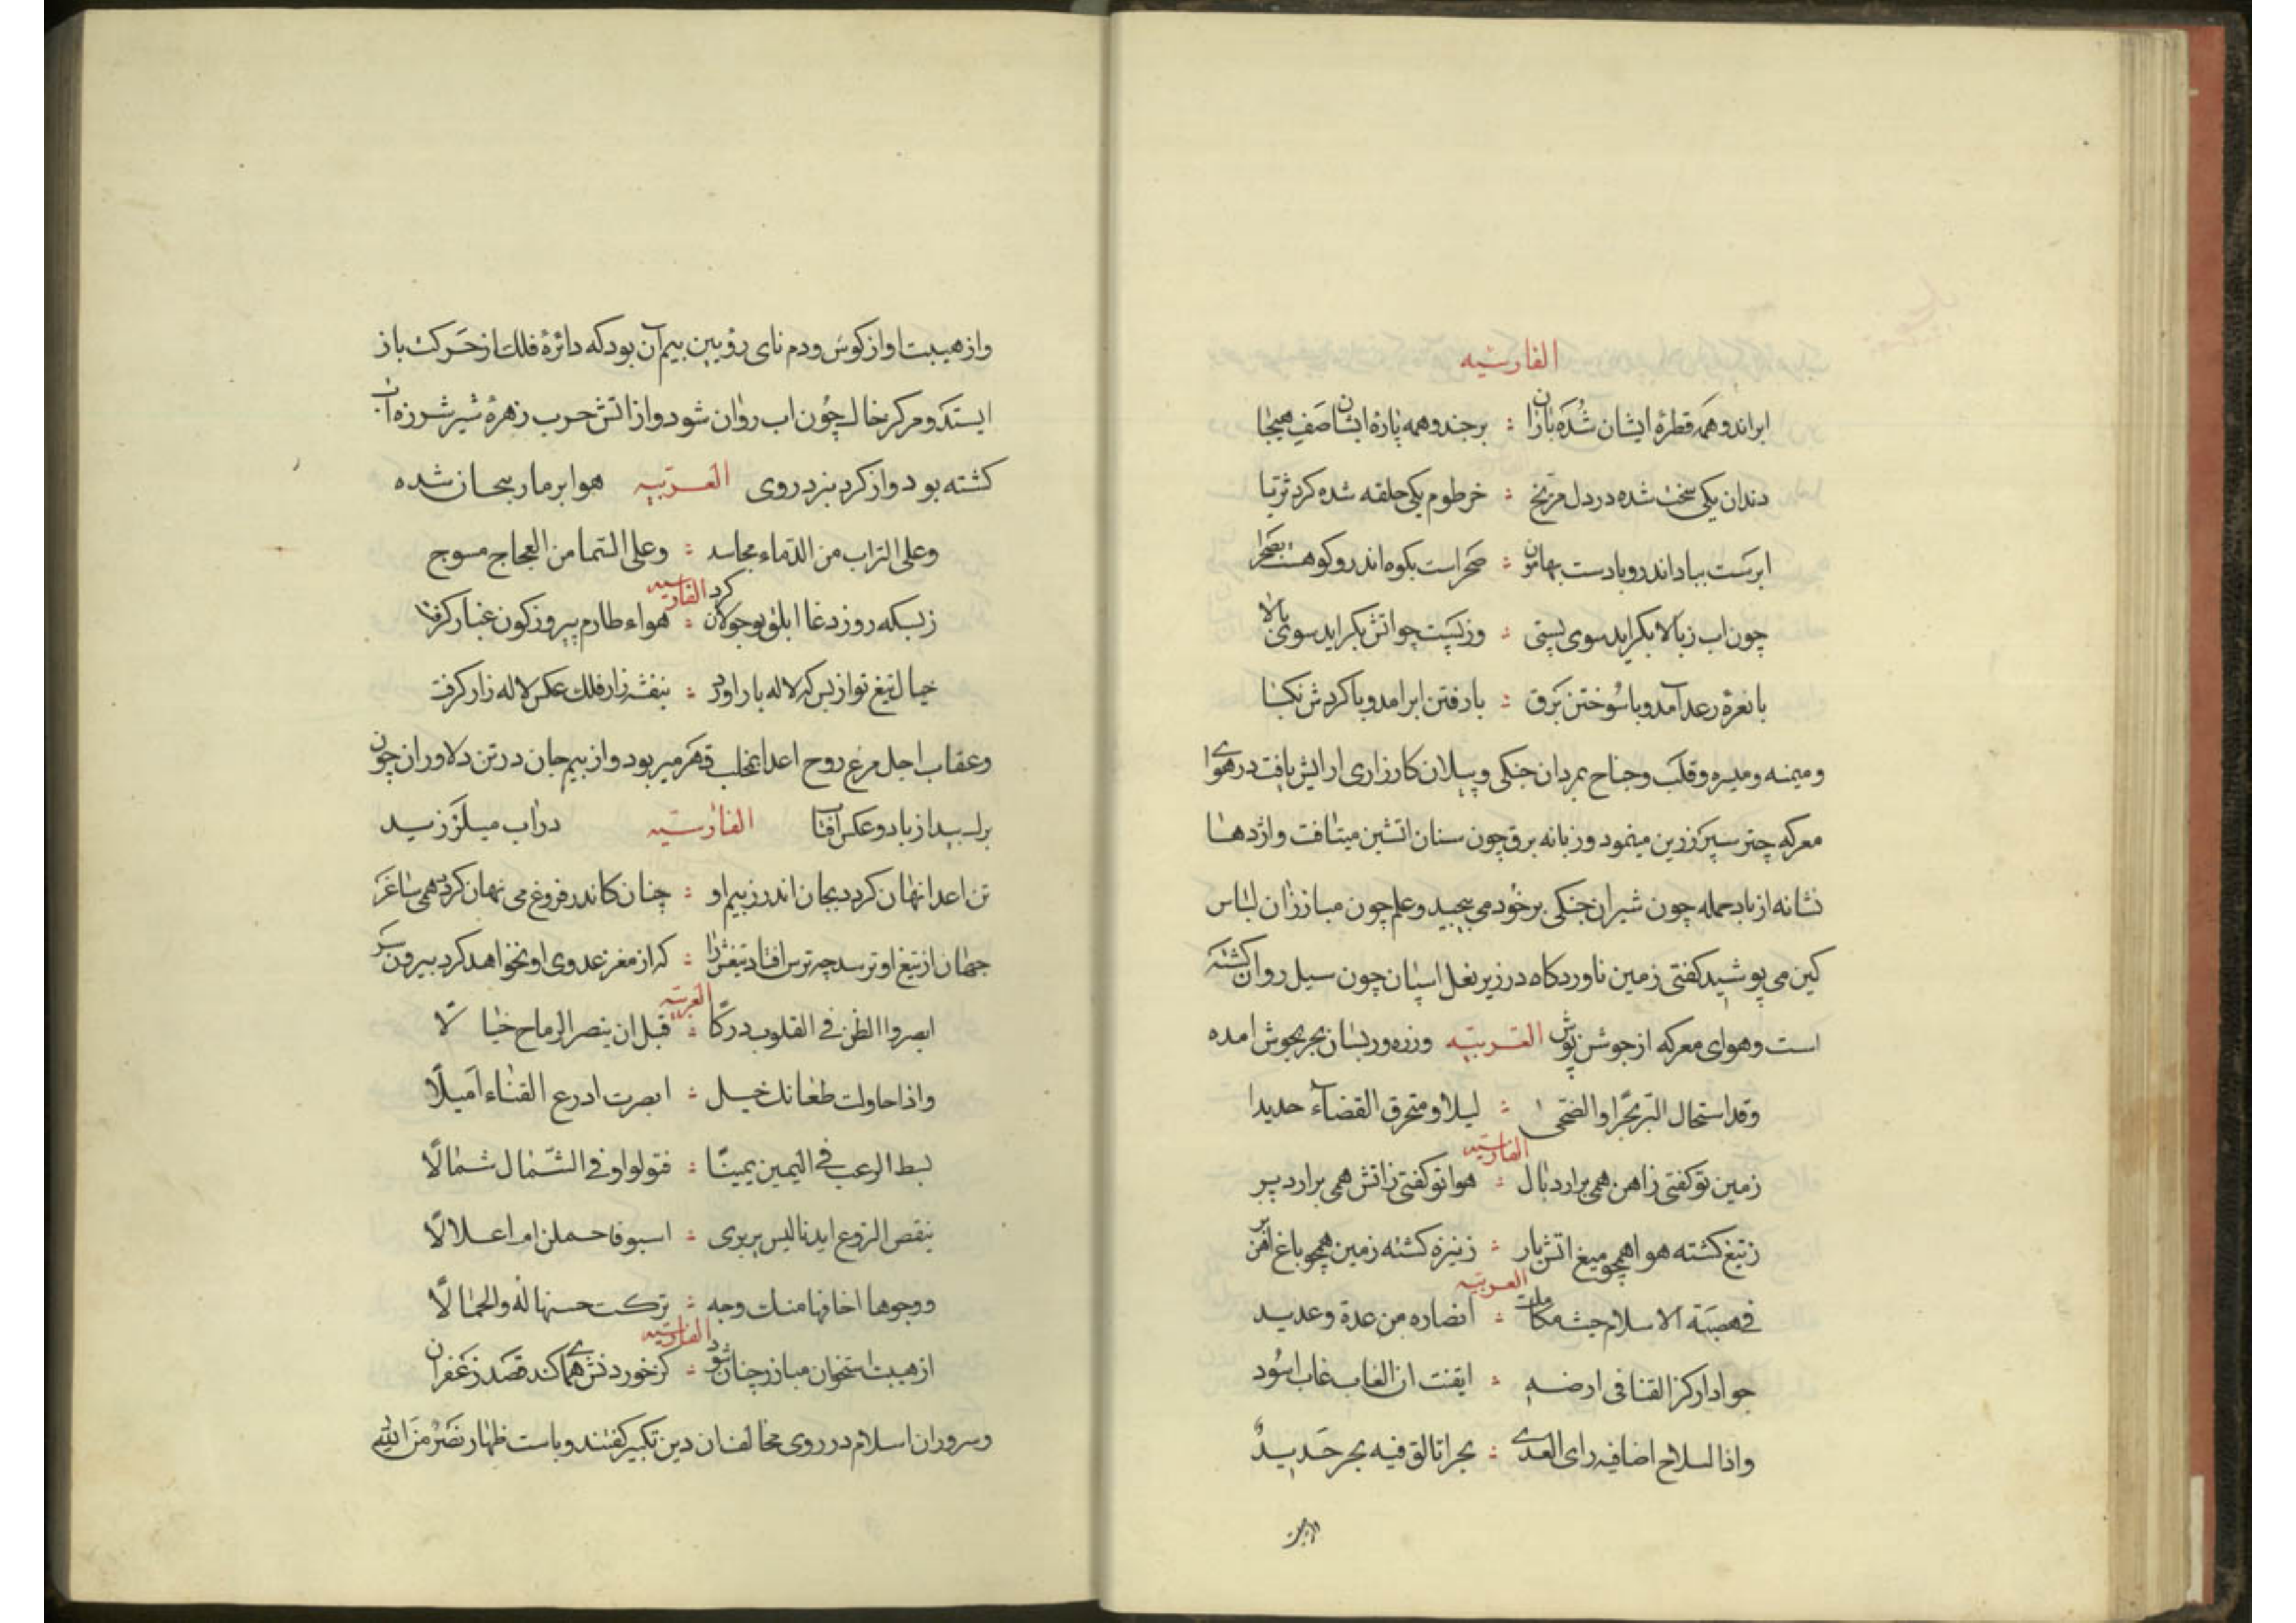 الفارسیه
ابراند و همه قطرهٔ ایشان شده باران : برجند و همه پارهٔ ایشان صف هیجا
دندان یکی سخت شده در دل مریخ : خرطوم یکی حلقه شده کرد ثریا
ابرست بباد اندر و بادست بهامون : صحراست بکوه اندر و کوهست بصحرا
چون اب ز بالا بکراید سوی پستی : وز پست چو اتش بکراید سوی بالا
با نعرهٔ رعد آمد و با سوختن برق : با رفتن ابر امد و با کردش نکبا
و میمنه و میسره و قلب و جناح بمردان جنکی و پیلان کارزاری ارایش یافت در هوای
معرکه چتر سپر زرین مینمود و زبانه برق چون سنان اتشین میتافت و اژدها
نشانه از باد حمله چون شیران جنکی بر خود می پیچید و علم چون مبارزان لباس
کین می پوشید کفتی زمین ناوردکاه در زیر نعل اسپان چون سیل روان کشته
است و هوای معرکه از جوشن پوش العربیه وزره ور بسان بحر بجوش امده
وقد استحال البر بحرا والضحی : لیلا ومنخرق القضآء حدیدا
الفارسیه
زمین تو کفتی زاهن همی برارد بال : هوا تو کفتی زاتش همی برارد پر
ز تیغ کشته هوا همچو میغ اتش بار : ز نیزه کشته زمین همچو باغ اهن بر
العربیه
فی هضبة الاسلام حیث تکاملت : انصاره من عدة وعدید
جواد ارکز القنا فی ارضه : ایقنت ان الغاب غاب اسود
واذا السلاح اضا فیه رای العدی : بحرا تالق فیه بحر حدید
واز هیبت
واز هیبت اواز کوس و دم نای رویین بیم آن بود که دائرهٔ فلک از حرکت باز
ایستد و مرکز خاک چون اب روان شود و از اتش حرب زهرهٔ شیر شرزه آب
کشته بود و از کرد نبرد روی العربیه هوا بر مار پیجان شده
وعلی التراب من الدماء مجاسد : وعلی السما من العجاج مسوج
الفارسیه
ز بسکه روز دغا ابلق تو جولان کرد : هواء طارم پیروزکون غبار کرفت
خیال تیغ تو از بس که لاله بار اورد : بنفشه زار فلک عکس لاله زار کرفت
و عقاب اجل مرغ روح اعدا بمخلب قهر میربود و از بیم جان در تن دلاوران چون
برک بید از باد و عکس آفتاب الفارسیه در اب میلرزید
تن اعدا نهان کردد بجان اندر ز بیم او : چنان کاندر فروغ می نهان کردد همی ساغر
جهان از تیغ او ترسد چه ترس افتاد تیغش را : که از مغز عدوی او نخواهد کرد بیرون سر
العربیه
ابصروا الطعن فی القلوب درکا : قبل ان ینصر الرماح خیالا
واذا حاولت طعانک خیل : ابصرت ادرع القناء امیالا
بسط الرعب فی الیمین یمینا : فتولوا وفی الشمال شمالا
ینقص الروع ایدیا لیس یدری : اسیوفا حملن ام اغلالا
ووجوها اخافها منک وجه : ترکت حسنها له والجمالا
الفارسیه
از هیبت استخوان مبارز چنان شود : کز خوردنش همای کند قصد زعفران
و سروران اسلام در روی مخالفان دین تکبیر کفتند و باستظهار نصر من الله